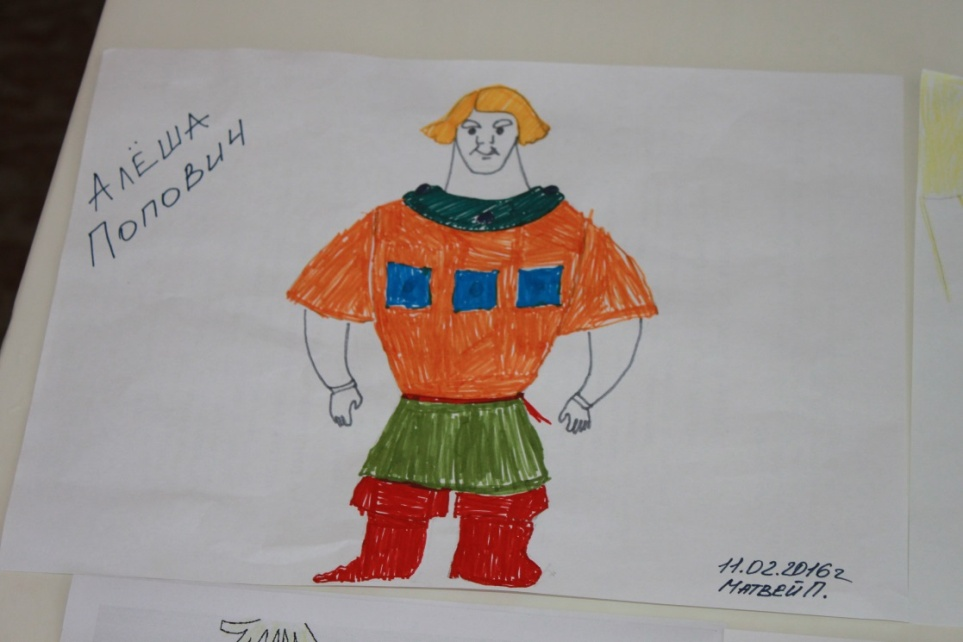 АЛЁША
ПОПОВИЧ
11.02.2016г
МАТВЕЙ П.